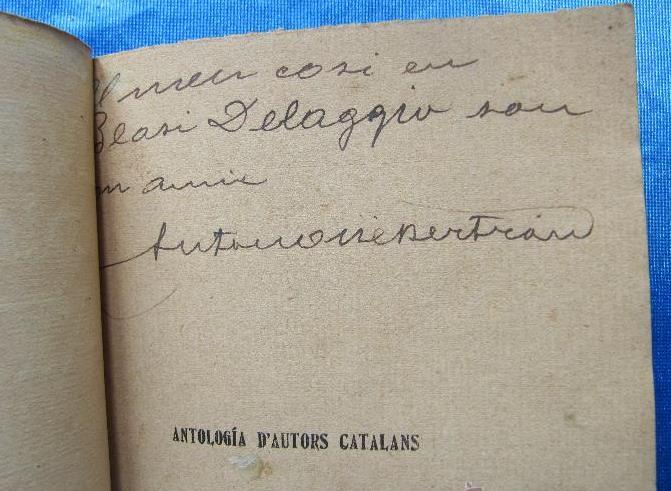 Al meu cosi en
Blasi Delaggio son
bon amic
Antoni Isern Bertran
ANTOLOGÍA D'AUTORS CATALANS